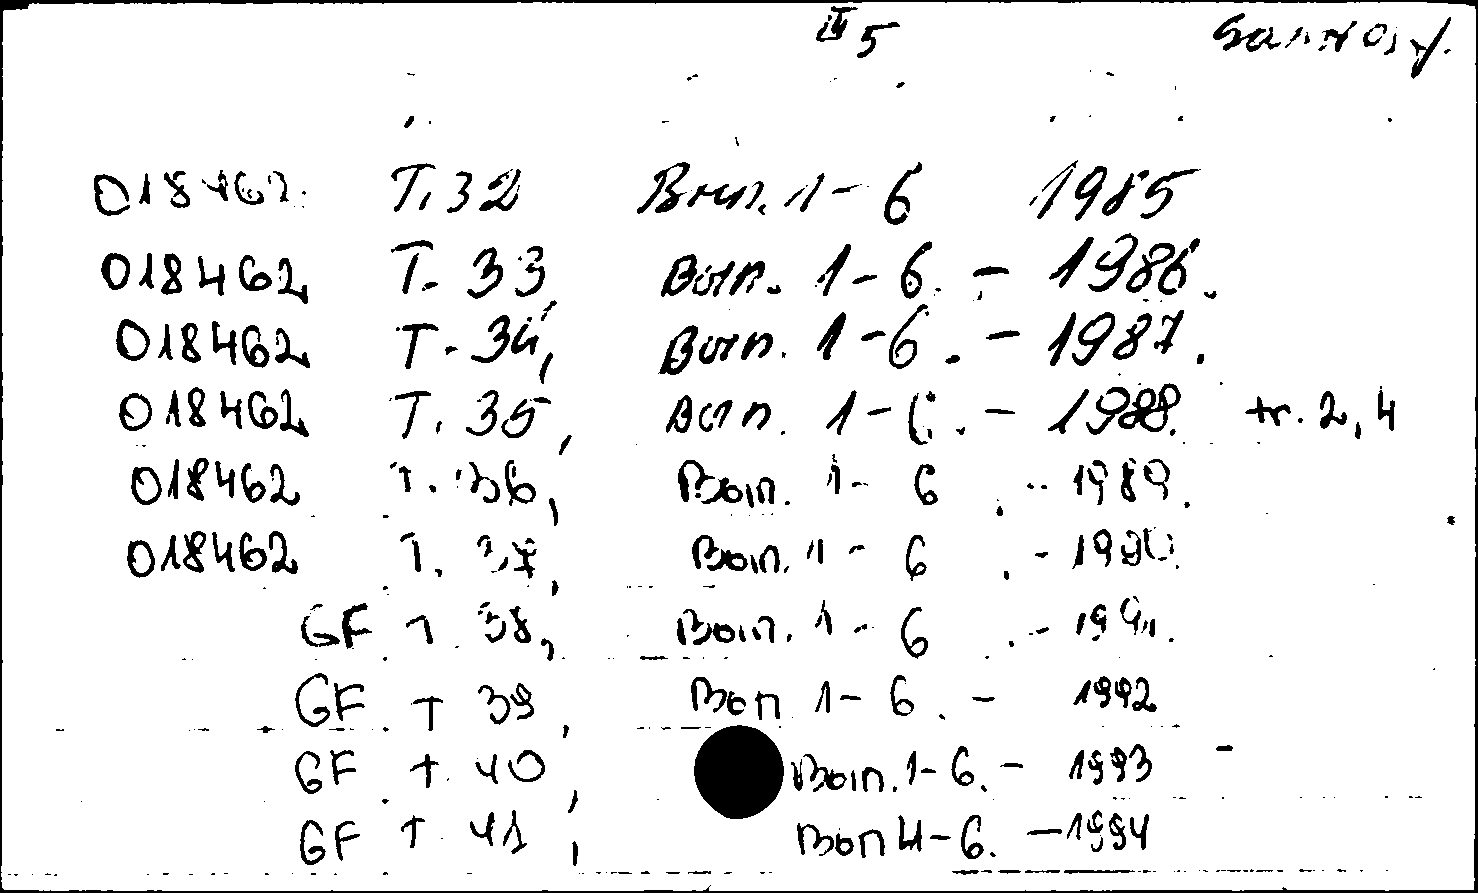 III 5
018462 Т. 32 Вып. 1-6 1985
018462 Т. 33, Вып. 1-6. - 1986.
018462 Т. 34, Вып. 1-6. - 1987.
018462 Т. 35, Вып. 1-6. - 1988. tr. 2,4
018462 Т. 36, Вып. 1-6. - 1989.
018462 Т. 37, Вып. 1-6. - 1990.
GF Т 38, Вып. 1-6. - 1991.
GF Т 39, Вып 1-6. - 1992
GF Т. 40, Вып. 1-6. - 1993
GF Т. 41, Вып 4-6. - 1994